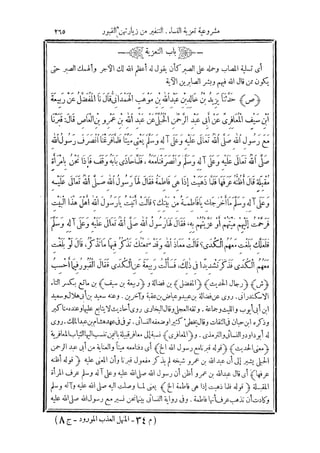 مشروعية تعزية النساء . التنفير من زيارتهن القبور ٢٦٥
باب التعزية
أى تسلية المصاب وحمله على الصبر كأن يقول له أعظم الله لك الأجر وألهمك الصبر حتى
يكون من قال الله فيهم وبشر الصابرين الآية
(ص) حَدَّثَنَا يَزِيدُ بْنُ خَالِدِ بْنِ عَبْدِ اللهِ بْنِ مَوْهَبٍ الْهَمْدَانِىُّ قَالَ نَا الْمُفَضَّلُ عَنْ رَبِيعَةَ
ابْنِ سَيْفٍ الْمَعَافِرِىِّ عَنْ أَبِى عَبْدِ الرَّحْمَنِ الْحُبُلِىِّ عَنْ عَبْدِ اللهِ بْنِ عَمْرِو بْنِ الْعَاصِ قَالَ قَبَرْنَا
مَعَ رَسُولِ اللهِ صَلَّى اللهُ تَعَالَى عَلَيْهِ وَعَلَى آلِهِ وَسَلَّمَ يَعْنِى مَيِّتًا فَلَمَّا فَرَغْنَا انْصَرَفَ رَسُولُ اللهِ
صَلَّى اللهُ تَعَالَى عَلَيْهِ وَعَلَى آلِهِ وَسَلَّمَ وَانْصَرَفْنَا مَعَهُ فَلَمَّا حَاذَى بَابَهُ وَقَفَ فَإِذَا نَحْنُ بِامْرَأَةٍ
مُقْبِلَةٍ قَالَ أَظُنُّهُ عَرَفَهَا فَلَمَّا ذَهَبَتْ إِذَا هِىَ فَاطِمَةُ فَقَالَ لَهَا رَسُولُ اللهِ صَلَّى اللهُ تَعَالَى عَلَيْهِ
وَعَلَى آلِهِ وَسَلَّمَ مَا أَخْرَجَكِ يَا فَاطِمَةُ مِنْ بَيْتِكِ قَالَتْ أَتَيْتُ يَا رَسُولَ اللهِ أَهْلَ هَذَا الْبَيْتِ
فَرَحَّمْتُ إِلَيْهِمْ مَيِّتَهُمْ أَوْ عَزَّيْتُهُمْ بِهِ، فَقَالَ لَهَا رَسُولُ اللهِ صَلَّى اللهُ تَعَالَى عَلَيْهِ وَعَلَى آلِهِ وَسَلَّمَ
فَلَعَلَّكِ بَلَغْتِ مَعَهُمُ الْكُدَى؟ قَالَتْ مَعَاذَ اللهِ وَقَدْ سَمِعْتُكَ تَذْكُرُ فِيهَا مَا تَذْكُرُ، قَالَ لَوْ بَلَغْتِ
مَعَهُمُ الْكُدَى فَذَكَرَ تَشْدِيدًا فِى ذَلِكَ، فَسَأَلْتُ رَبِيعَةَ عَنِ الْكُدَى فَقَالَ الْقُبُورُ فِيمَا أَحْسَبُ
(ش) (رجال الحديث) (المفضل) بن فضالة و (ربيعة بن سيف) بن ماتع بكسر التاء
الاسكندرانى. روى عن فضالة بن عبيد وعياض بن عقبة وآخرين. وعنه سعيد بن أبى هلال وسعيد
ابن أبى أيوب والليث وجماعة. وثقه العجلى وقال البخارى روى أحاديث لا يتابع عليها وعنده مناكير
وذكره ابن حبان فى الثقات وقال يخطئ كثيرا وضعفه النسائى. توفى فى عهد هشام بن عبد الملك. روى
له أبو داود والنسائى والترمذى. و (المعافرى)
(معنى الحديث) (قوله قبرنا مع رسول الله الخ) أى دفنا معه ميتا
الحبلى يشير إلى أن عبد الله بن عمرو شيخه لم يذكر مفعول قبرنا وأن المعنى عليه (قوله أظنه
عرفها) أى قال عبد الله بن عمرو أظن أن رسول الله صلى الله عليه وعلى آله وسلم عرف المرأة
المقبلة (قوله فلما ذهبت إذا هى فاطمة الخ) يعنى لما وصلت اليه صلى الله عليه وآله وسلم
وكادت أن تذهب عرف أنها فاطمة. وفى رواية النسائى بينما نحن نسير مع رسول الله صلى الله عليه
(م ٣٤ - المنهل العذب المورود - ج ٨)